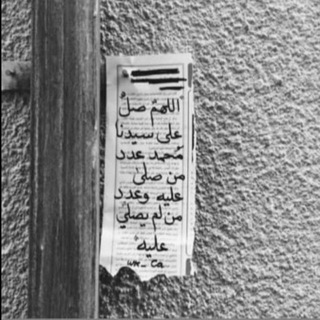 اللهمّ صلّ
على سيدنا
محمد عدد
من صلىٰ
عليه وعدد
من لم يصلي
عليه